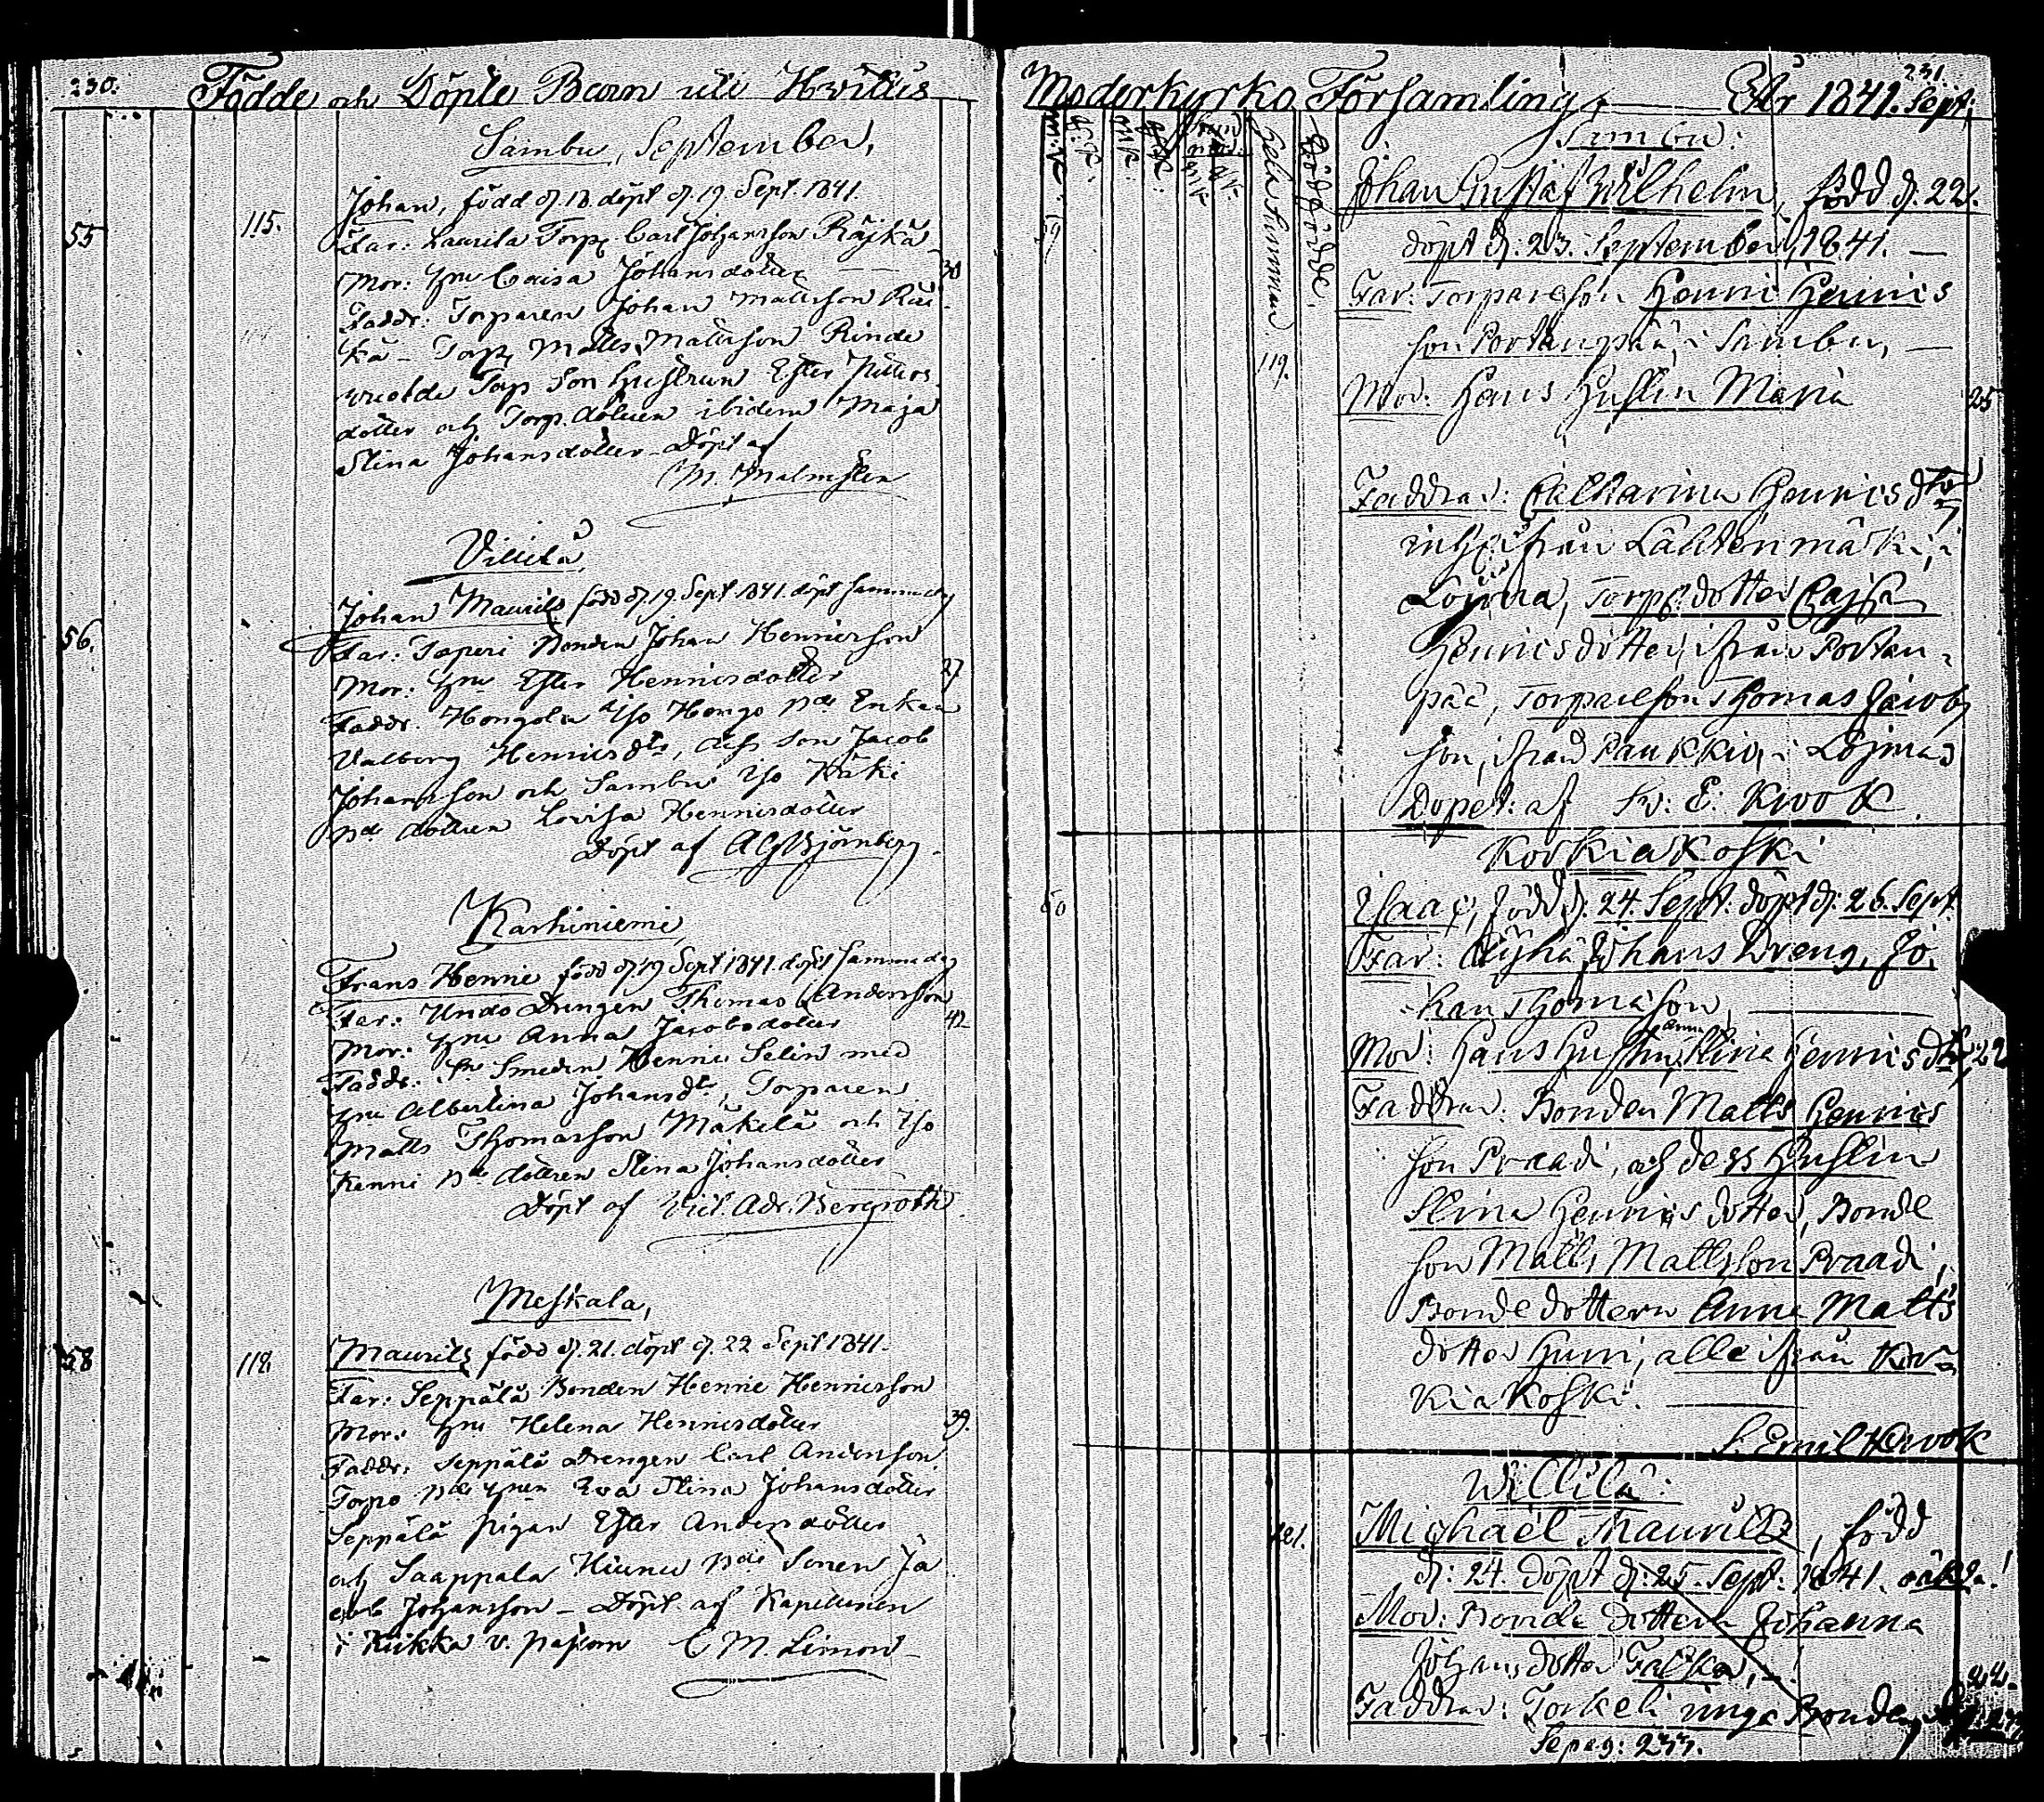 230. Födde och Döpte Barn uti Hvittis
Sambu, September,
55 115. Johan, född d. 18. döpt d. 19 Sept. 1841.
Far: Laurila Torp. Carl Johansson Räjkä
Mor: Hu Caisa Johansdotter 30
Faddr: Torparen Johan Mattsson Räi
kä - Torp. Matts Mattsson Rinda
Torp Son hustrun Ester
dotter och Torp. dottren ibidem Maja
Stina Johansdotter - Döpt af
M. Malmsten
Villilä
56. Johan Maurits född d. 19 Sept 1841. döpt samma dag
Far: Taperi Bonden Johan Henricsson
Mor: Hu Ester Henricsdotter 27
Faddr: Hongola Iso Hongo Enkan
Valborg Henricsdtr, dess son Jacob
Johansson och Sambu Iso Käki
dottren Lovisa Henricsdotter
Döpt af A G Björnberg
Karhiniemi
Frans Henric född d. 19 Sept 1841. döpt samma dag
Far: Undo Drengen Thomas Andersson
Mor: Hu Anna Jacobsdotter 42
Faddr: Smeden Henric Selin med
Hu Albertina Johansdr, Torparen
Matts Thomasson Mäkelä och Iso
Kenni dottren Stina Johansdotter
Döpt af Vict. Adr. Bergroth
Meskala,
58 118 Maurits född d. 21. döpt d. 22 Sept 1841.
Far: Seppälä Bonden Henric Henricsson
Mor: Hu Helena Henricsdotter 39.
Faddr: Seppälä Drengen Carl Andersson
Torpo Eva Stina Johansdotter
Seppälä pigan Ester Andersdotter
och Saappala Sonen Ja
cob Johansson - Döpt af Kapellanen
i Kiikka v. pastorn C M. Limon
Moderkyrko Församling, År 1841. Sept. 231.
Hela Summan
Dödfödde.
Sambu:
119. Johan Gustaf Wilhelm, född d. 22.
döpt d: 23. September, 1841.
Far: Torpareson Henric Henrics
son Portanpää, i Sambu,
Mor: Hans Hustru Maria 25
Faddrar: Catharina Henricsdtr
ifrån Lähtenmäki, i
Loijma, Torp. dotter Cajsa
Henricsdotter, ifrån Portan
pää, Torpareson Thomas Jacobs
son, ifrån Paukkio, i Lojma
Döpet: af Sv: E: Kwok.
Korkiakoski
60 Isaac, född d. 24. Sept. döpt d: 26. Sept.
Far: Äijhä Johans Dreng, Jo
han Thomasson
Mor: Hans Hustru, Anna Stina Henricsdtr, 22
Faddrar: Bonden Matts Henrics
son Praadi, och dess Hustru
Stina Henricsdotter, Bonde
son Matts Mattsson Praadi,
Bondedottern Anna Matts
dotter Huni, alle ifrån Kor
kiakoski.
S. Emil Kwok
Willilä:
121. Michaël Mauritz, född
d: 24. döpt d: 25. Sept: 1841. oäkta!
Mor: Bonde Dottern Johanna
Johansdotter Falka, 22.
Faddrar: Torkeli unga Bonden
Se pag: 233.